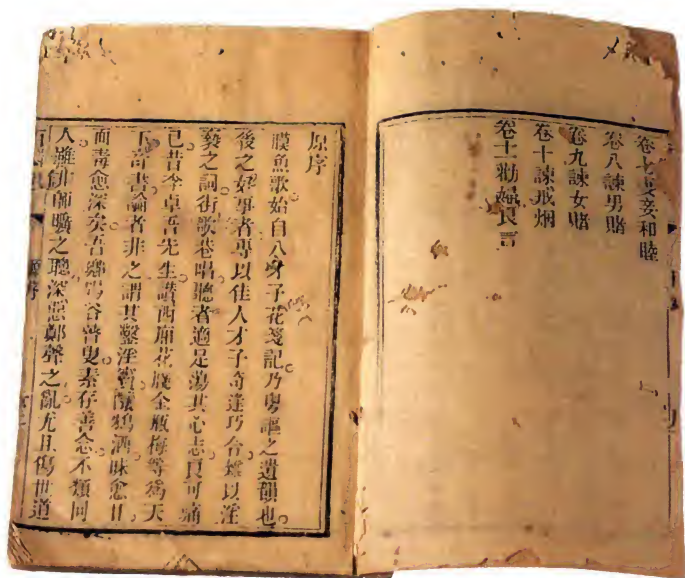 卷七妻妾和睦
卷八諫男賭
卷九諫女賭
卷十諫戒烟
卷十一勸婦良言
原序
膜魚歌始自八身子花箋記乃粵謳之遺韻也
後之好事者專以佳人才子奇逢巧合蝶以淫
褻之詞街歌巷唱聽者適足蕩其心志良可痛
已昔李卓吾先生讚西廂花箋金瓶梅等爲天
下奇書論者非之謂其鑿淫竇釀鴆酒味愈甘
而毒愈深矣吾鄉 谷瞽叟素存善念不類同
人雖非師曠之聰深惡鄭聲之亂尤且傷世道
原序